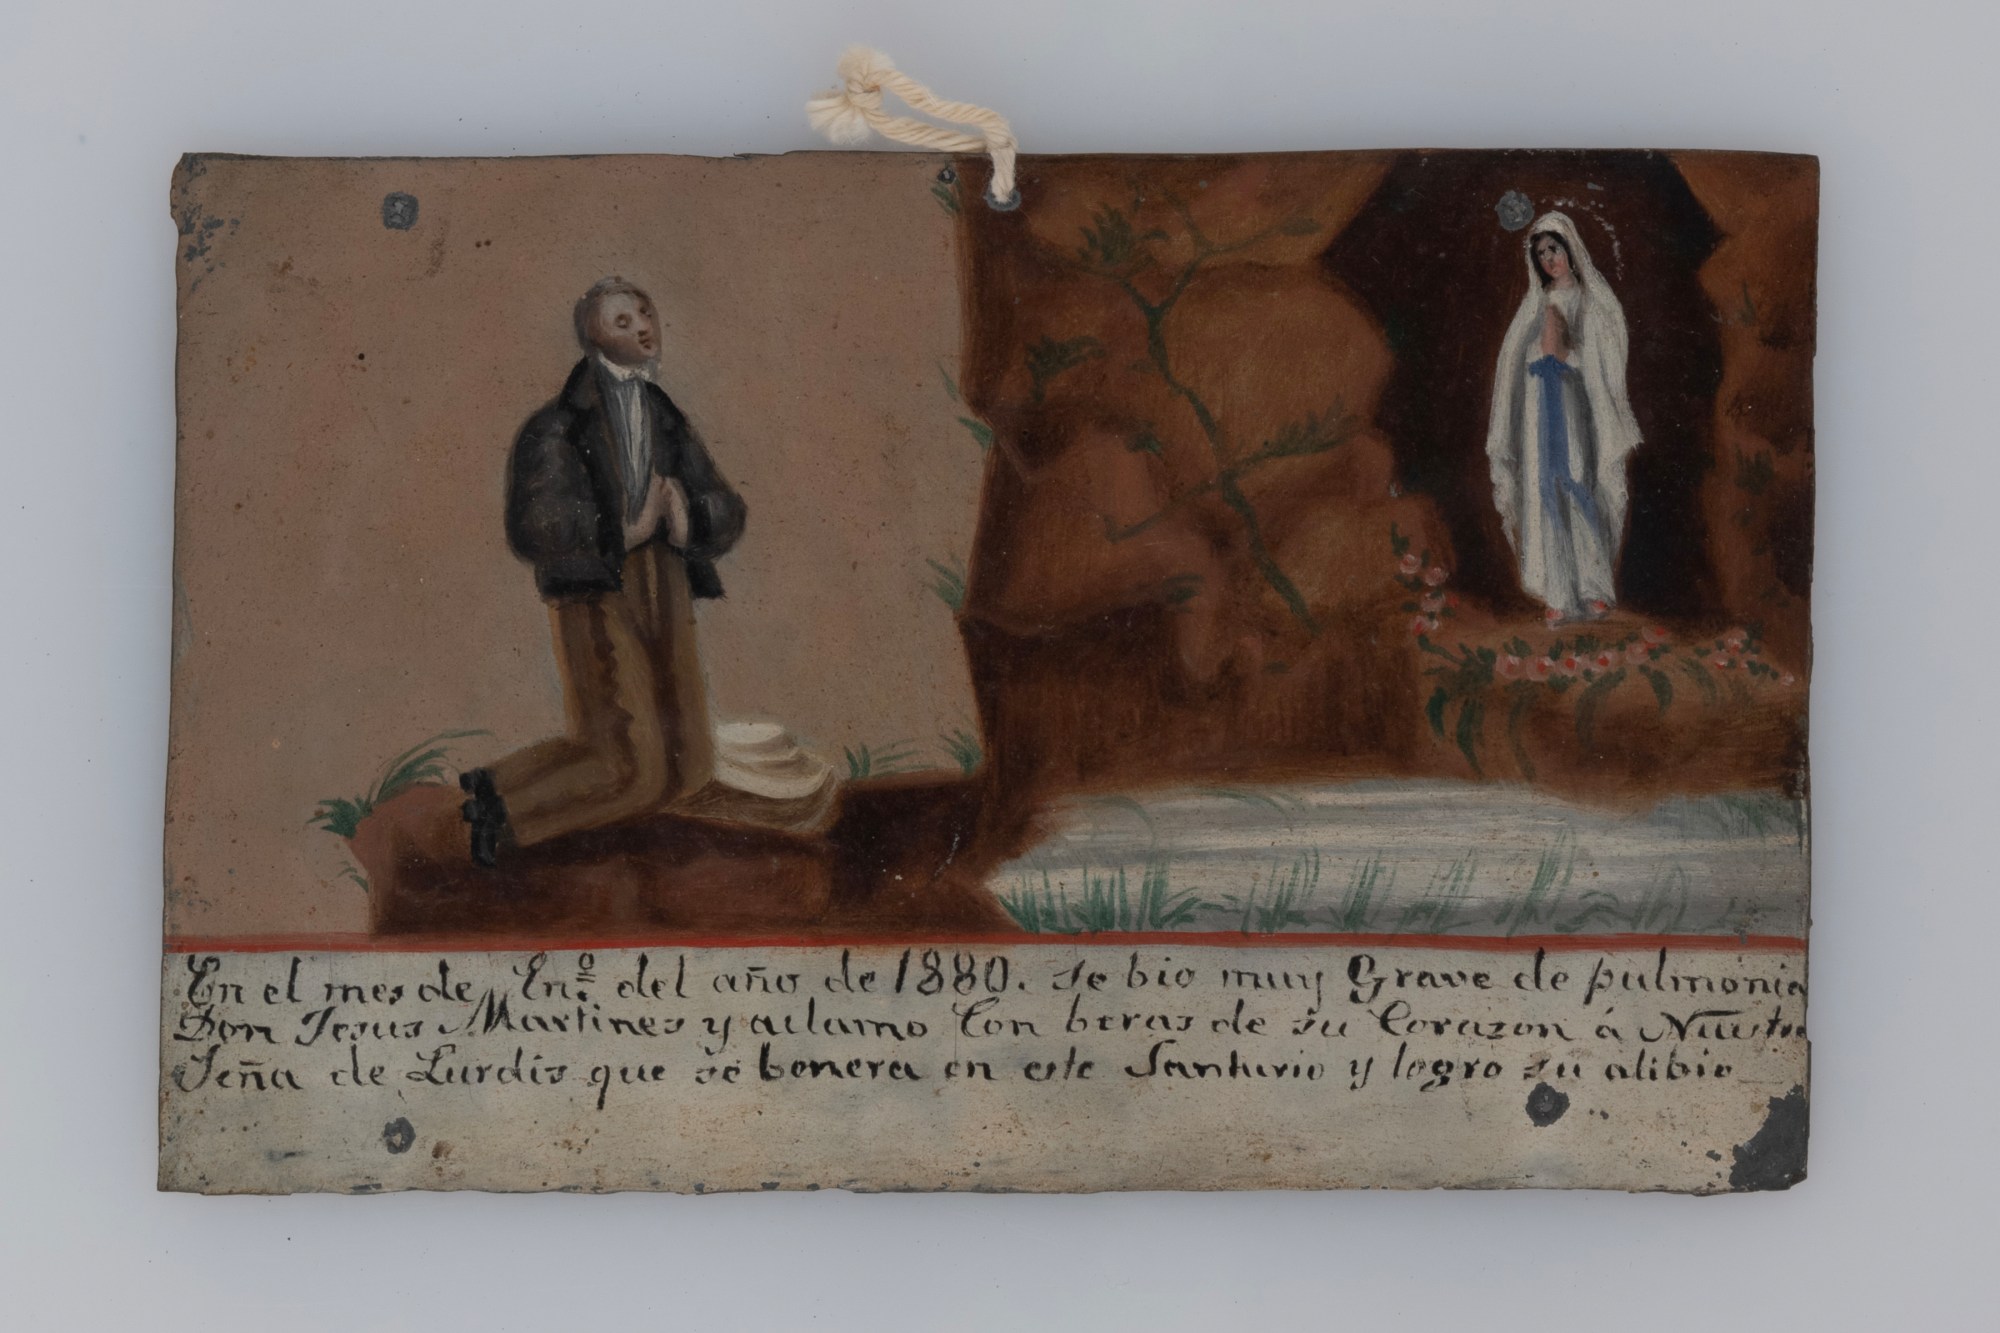 En el mes de En.º del año de 1880. se bio muy Grave de pulmonia
Don Jesus Martines y aclamo Con beras de su Corazon á Nuestra
Señã de Lurdis que se benera en este Santurio y logro su alibio